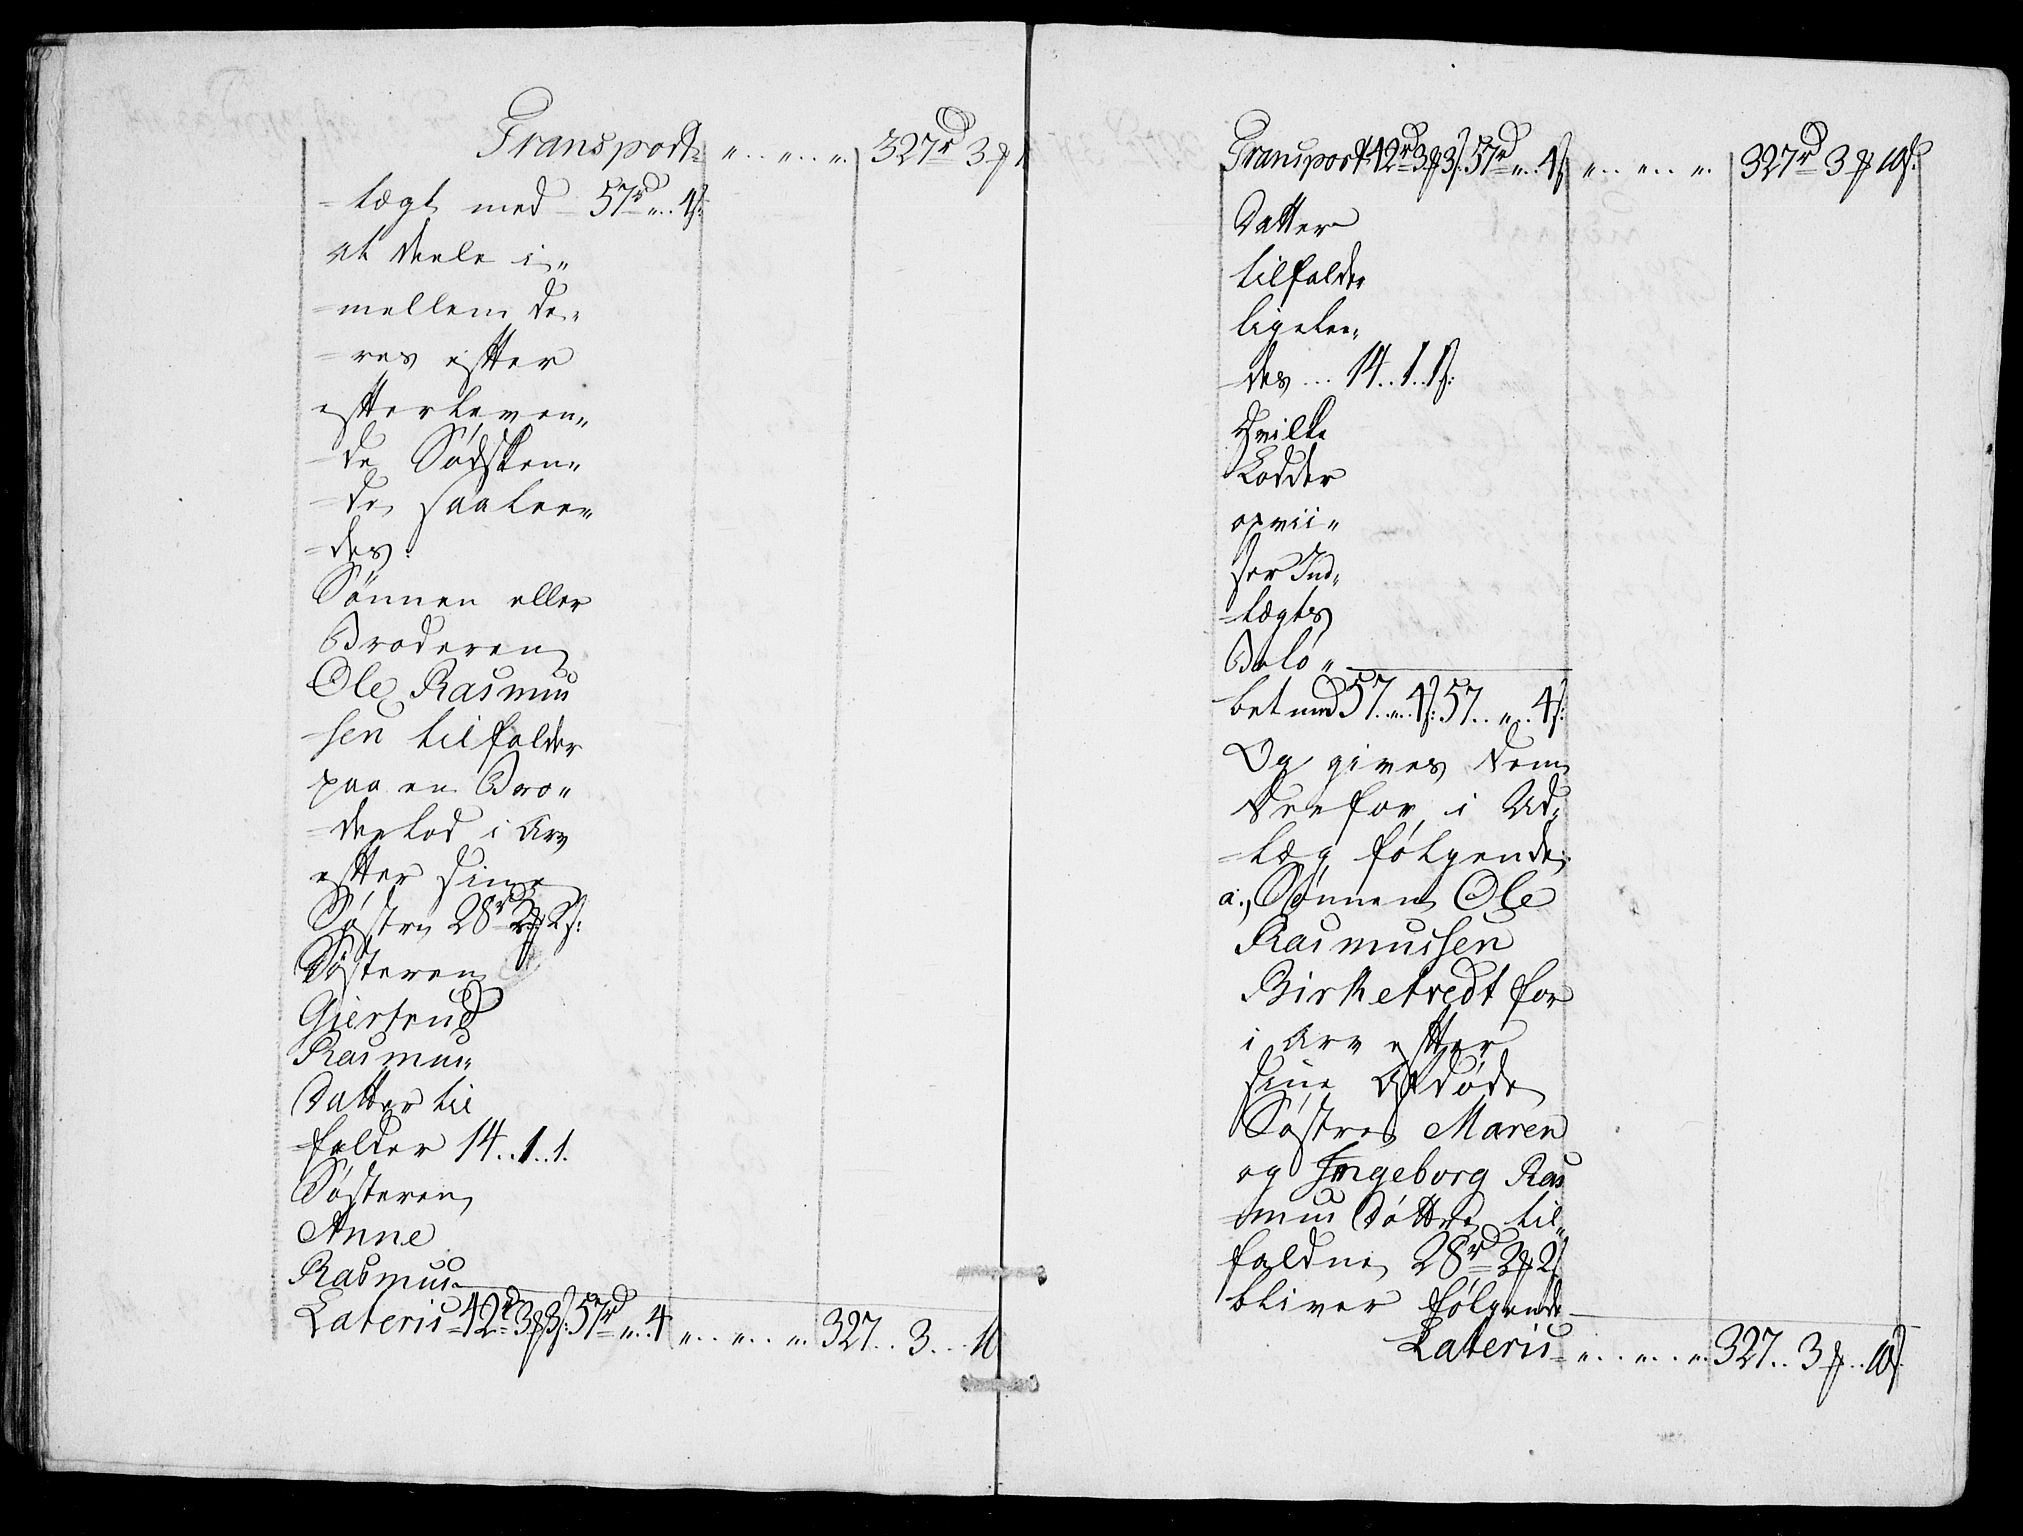 Transport „ . . „ . . „ . 327rd 3 ₰ 1
-lægt med 57rd „ . 4s:
at deele i„
-mellem de„
-res efter
efterleven„
-de Sødsken„
-de saalee„
-des:
Sønnen eller
Broderen
Ole Rasmus
-sen tilfalder
paa en Bro„
-derlod i Arv
efter sine
Søstre 28rd 2₰ 2s:
Søsteren
Giertrud
Rasmus„
Datter til
-falder 14 . . 1 . . 1.
Søsteren
Anne
Rasmus
Lateris 42rd 3₰ 3s: 57rd „ . 4 „ . . „ . . „ . 327 . . 3 . . . 10
Transport 42rd 3₰ 3s. 57rd „ . 4s „ . . „ . . „ . 327rd 3 ₰ 10s:
Datter
tilfalder
ligelee„
-des . . . 14 . . 1 . . 1s:
Hvilke
Lodder
opvii„
ser Ind„
-lægts
Belø„
bet med 57 . „ . 4s: 57 . . „ . . 4s:
Og gives dem
derfor i Ud„
-læg følgende:
a., Sønnen Ole
Rasmussen
Birketvedt for
i Arv efter
sine Afdøde
Søstre Maren
og Ingeborg Ras
-mus Døttre til„
faldne 28rd 2₰ 2s
bliver følgende
Lateris „ . . „ . . „ . 327 . . 3 ₰ . . 10s: